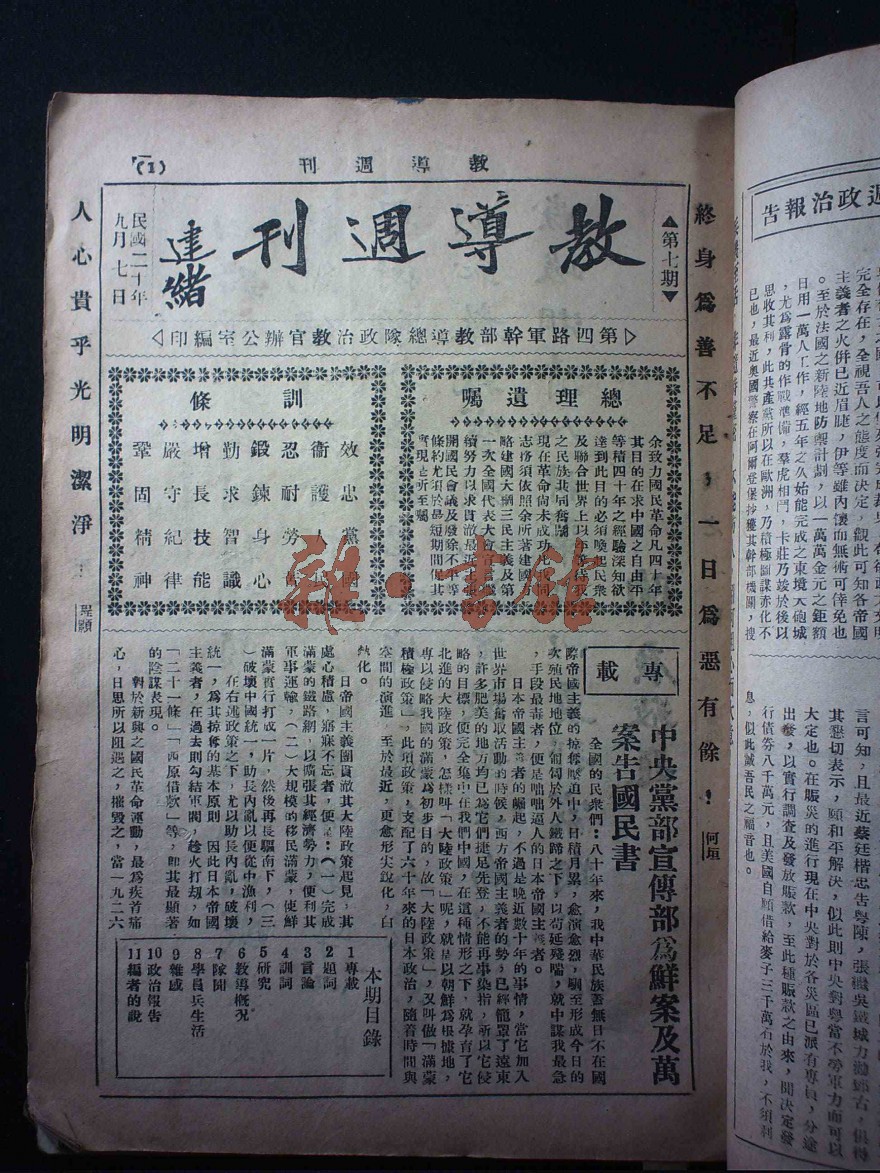 教導週刊
(1)
終身爲善不足,一日爲惡有餘!
何垣
▲第七期▼
教導週刊
建緒
民國二十年
九月七日
人心貴乎光明潔淨!
程顥
第四路軍幹部教導總隊政治教官辦公室編印
總理遺囑
余致力國民革命凡四十年
其目的在求中國之自由平
等積四十年之經驗深知欲
達到此目的必須喚起民衆
及聯合世界上以平等待我
之民族共同奮鬥
現在革命尚未成功凡我同
志務須依照余所著建國方
略建國大綱三民主義及第
一次全國代表大會宣言繼
續努力以求貫澈最近主張
開國民會議及廢除不平等
條約尤須於最短期間促其
實現是所至囑
訓條
效忠黨國
衞護人
忍耐勞
鍛鍊身心
勤求智識
增長技能
嚴守紀律
鞏固精神
專載
中央黨部宣傳部爲鮮案及萬
案告國民書
全國的民衆們:八十年來,我中華民族蓋無日不在國
際帝國主義的掠奪壓迫中,日積月累,愈演愈烈,馴至形成今日的
次殖民地地位,匍匐於外人鐵蹄之下,以苟延殘喘,就中謀我最急
,手段最毒者,便是咄咄逼人的日本帝國主義者。
日本帝國主義者的崛起,不過是晚近數十年的事情,當它加入
世界市場奪取活動的時候,西方帝國主義者的勢,已經籠罩了遠東
,許多肥美的地方均已爲它們捷足先登,不能再事染指,所以它侵
略的目標,便完全集中在我們中國,在這種情形之下,就孕育了它
北進的大陸政策,怎樣叫「大陸政策」呢,就是以朝鮮爲根據地,
專以侵略我國的滿蒙爲初步目的,故「大陸政策」,又叫做「滿蒙
積極政策」,此項政策,支配了六十年來的日本政治,隨着時間與
空間的演進,至於最近,更愈形尖銳化,白
熱化。
日帝國主義團貫澈其大陸政策起見,其
處心積慮,寤寐不忘者,便是:(一)完成
滿蒙的鐵路網,以擴張其經濟勢力,便利其
軍事運輸,(二)大規模的移民滿蒙,使鮮
滿蒙實行打成一片,然後再長驅南下,(三
)破壞中國統一,助長內亂以便從中漁利,
在右述政策之下,尤以助長內亂,破壞
統一,爲其掠奪的基本原則,因此日本帝國
主義者,在過去則勾結軍閥,趁火打刼,如
「二十一條」「西原借款」等,即其最顯著
的陰謀表現。
對於新興之國民革命運動,最爲疾首痛
心,日思所以阻遏之,摧毀之,當一九二六
本期目錄
1專載
2題詞
3言論
4訓詞
5研究
6教導概況
7隊聞
8學員兵生活
9雜感
10政治報告
11編者的說
週政治報告
完全存在,全視吾人之態度而決定,觀此可知各帝國
主義者之火併已近眉睫,伊等雖內讓而無術可倖免也
。至於法國之新陸地防禦計劃,以一萬萬金元之鉅額
日用一萬人工作,經五年之久始能完成之東境大砲城
,尤爲露骨的作戰準備,羣虎相鬥,卡莊乃竣於後以
思收其利,此共產黨所以在歐洲,乃積極圖謀赤化不
已也,最近奧國警察在阿爾卷保抄獲其幹部機關,搜
言可知,且最近蔡廷楷忠告粵陳,張繼吳鐵城力勸
其懇切表示,願和平解決,似此則中央對粵當不勞軍力而可以
大定也。在賑災的進行現在中央對於各災區已派有專員,分途
出發,以實行調查及發放賑款,至此種賑款之由來,聞決定發
行債劵八千萬元,且美國自願借給麥子三千萬石於我,不須利
息,似此誠吾民之福音也。
雜·書館